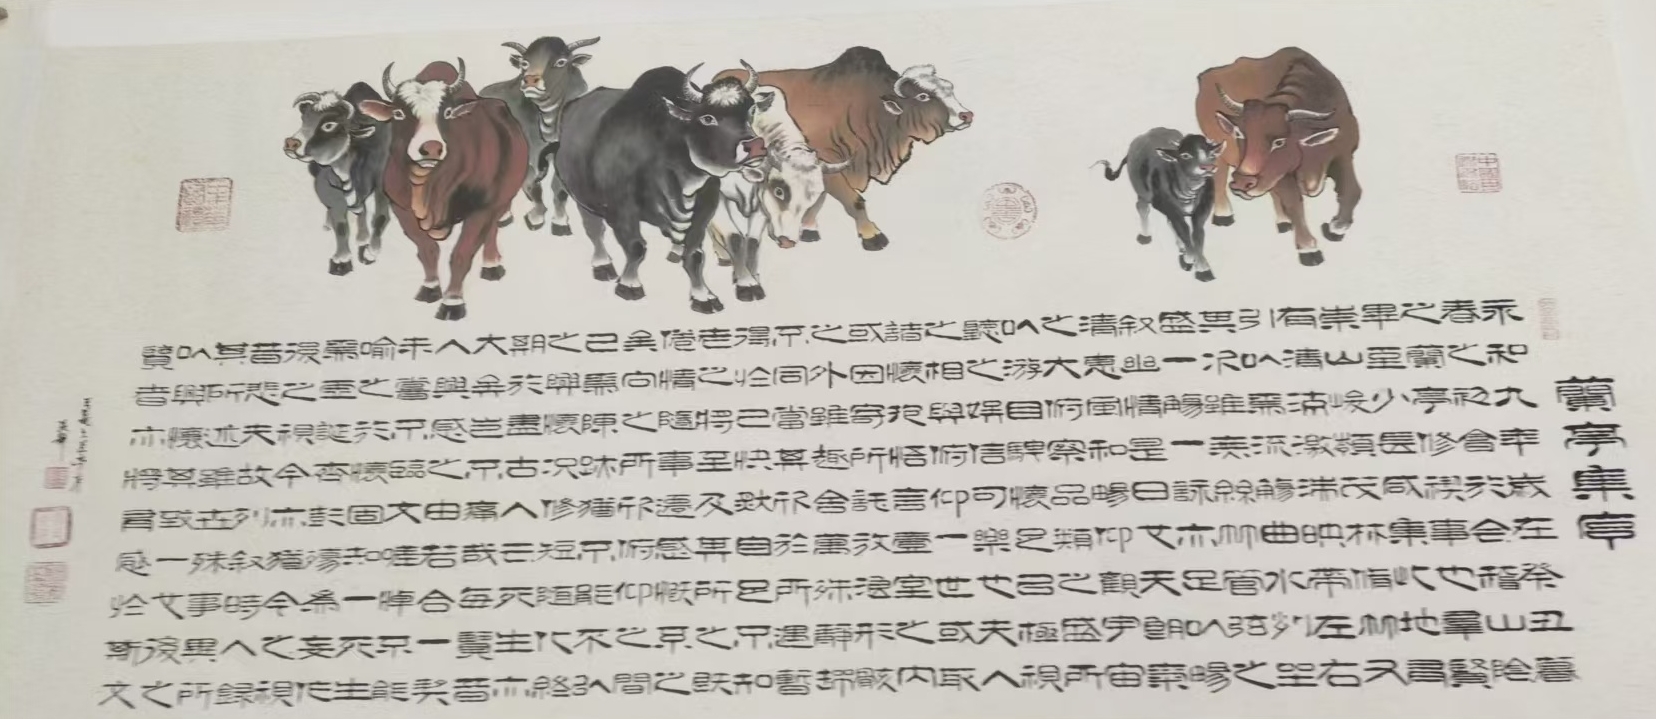 蘭亭集序
永和九年歲在癸丑暮
春之初會於會稽山陰
之蘭亭修禊事也羣賢
畢至少長咸集此地有
崇山峻領茂林脩竹又
有清流激湍映帶左右
引以爲流觴曲水列坐
其次雖無絲竹管弦之
盛一觴一詠亦足以暢
叙幽情是日也天朗氣
清惠風和暢仰觀宇宙
之大俯察品類之盛所
以游目騁懷足以極視
聽之娛信可樂也夫人
之相與俯仰一世或取
諸懷抱悟言一室之內
或因寄所託放浪形骸
之外雖趣舍萬殊靜躁
不同當其欣於所遇暫
得於己快然自足不知
老之將至及其所之既
倦情隨事遷感慨係之
矣向之所欣俛仰之間
已爲陳跡猶不能不以
之興懷況修短隨化終
期於盡古人云死生亦
大矣豈不痛哉每覽昔
人興感之由若合一契
未嘗不臨文嗟悼不能
喻之於懷固知一死生
爲虛誕齊彭殤爲妄作
後之視今亦猶今之視
昔悲夫故列叙時人錄
其所述雖世殊事異所
以興懷其致一也後之
覽者亦將有感於斯文